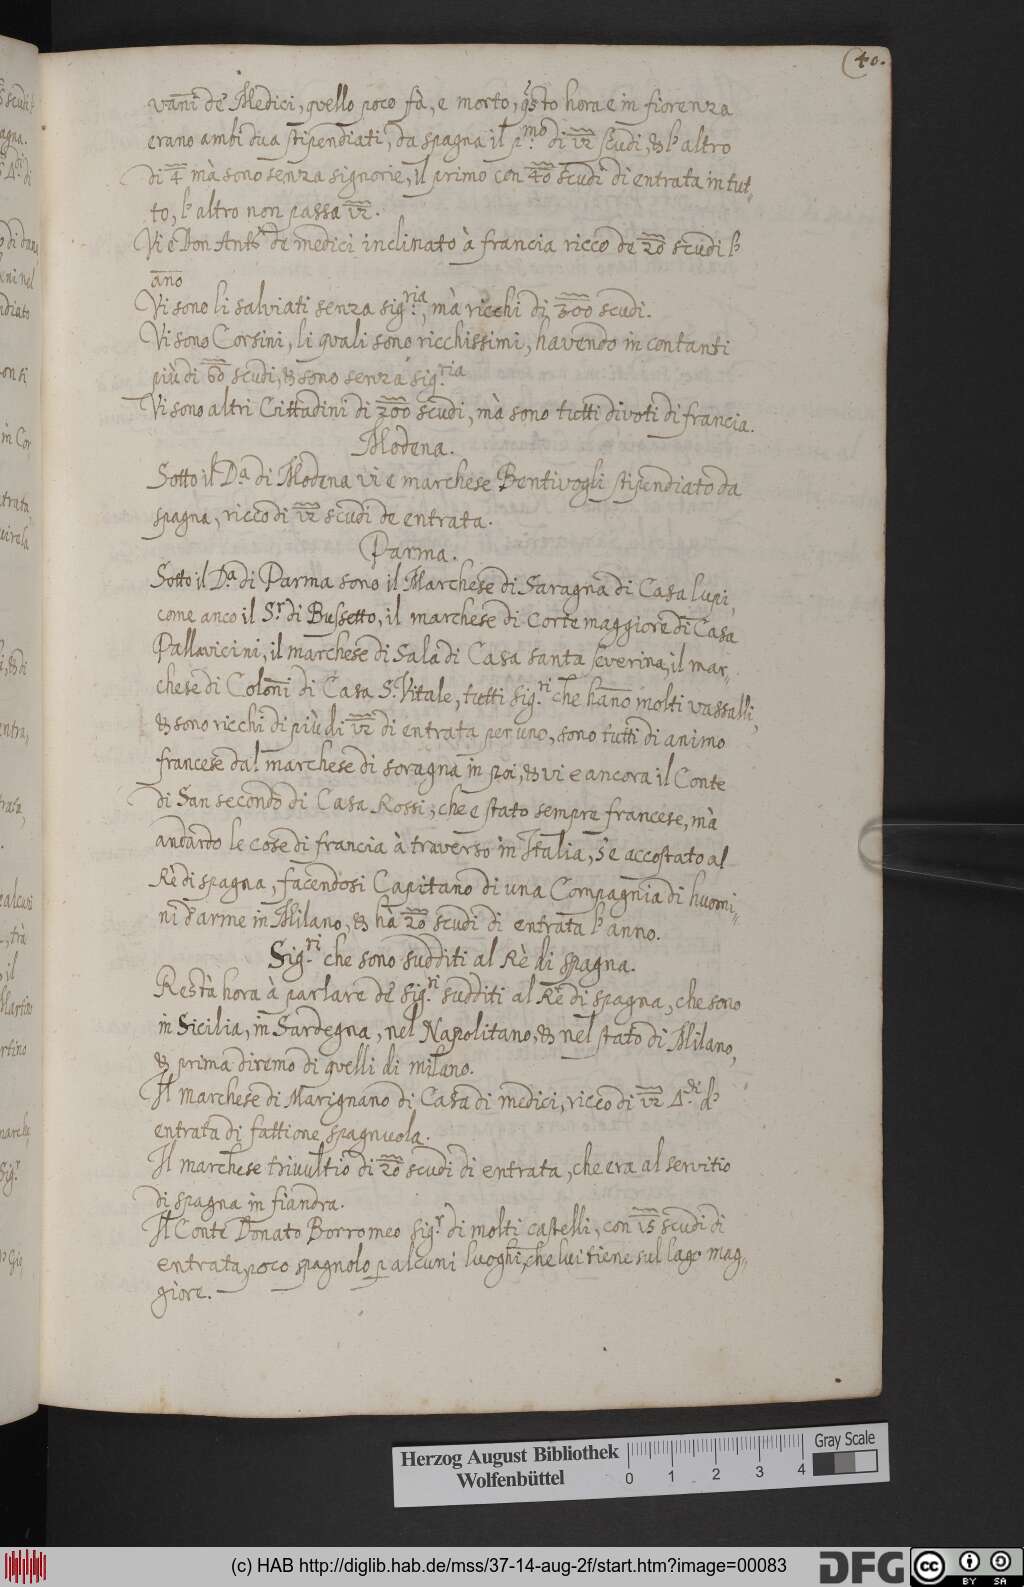 40.
vani de Medici, quello poco fà, e morto, qsto hora e in fiorenza
erano ambi dua stipendiati, da spagna il pmo di 12 scudi, & l'altro
di 4 mà sono senza signorie, il primo con 40 scudi di entrata in tut-
to, l'altro non passa 12.
Vi è Don Anto de medici inclinato à francia ricco de 20 scudi l'
ano
Vi sono li salviati senza sig.ria, mà ricchi di 300 scudi.
Vi sono Corsini, li quali sono ricchissimi, havendo in contanti
più di 60 scudi, & sono senza sig.ria
Vi sono altri Cittadini di 200 scudi, mà sono tutti divoti di francia.
Modena.
Sotto il Da di Modena vi e marchese Bentivogli stipendiato da
spagna, ricco di 12 scudi de entrata.
Parma.
Sotto il Da di Parma sono il Marchese di Saragna di Casa lupi,
come anco il Sr di Bussetto, il marchese di Corte maggiore di Casa
Pallavicini, il marchese di Sala di Casa santa severina, il mar-
chese di Coloni di Casa S. Vitale, tutti sig.ri che hano molti vassalli,
& sono ricchi di più di 12 di entrata per uno, sono tutti di animo
francese dal marchese di soragna in poi, & vi e ancora il Conte
di San secondo di Casa Rossi, che e stato sempre francese, mà
andardo le cose di francia à traverso in Italia, s'e accostato al
Rè di spagna, facendosi Capitano di una Compagnia di huomi-
ni d'arme in Milano, & hà 20 scudi di entrata l'anno.
Sig.ri che sono sudditi al Rè di spagna.
Resta hora à parlare de sig.ri sudditi al Re di spagna, che sono
in Sicilia, in Sardegna, nel Napolitano, & nel stato di Milano,
& prima diremo di quelli di milano.
Il marchese di Marignano di Casa di medici, ricco di 12 Δ.di d'
entrata di fattione spagnuola.
Il marchese trivultio di 20 scudi di entrata, che era al servitio
di spagna in fiandra.
Il Conte Donato Borromeo sig.r di molti castelli, con 15 scudi di
entrata, poco spagnolo p alcuni luoghi, che lui tiene sul lago mag-
giore.
Herzog August Bibliothek
Wolfenbüttel
0 1 2 3 4
Gray Scale
(c) HAB http://diglib.hab.de/mss/37-14-aug-2f/start.htm?image=00083
DFG
cc BY SA